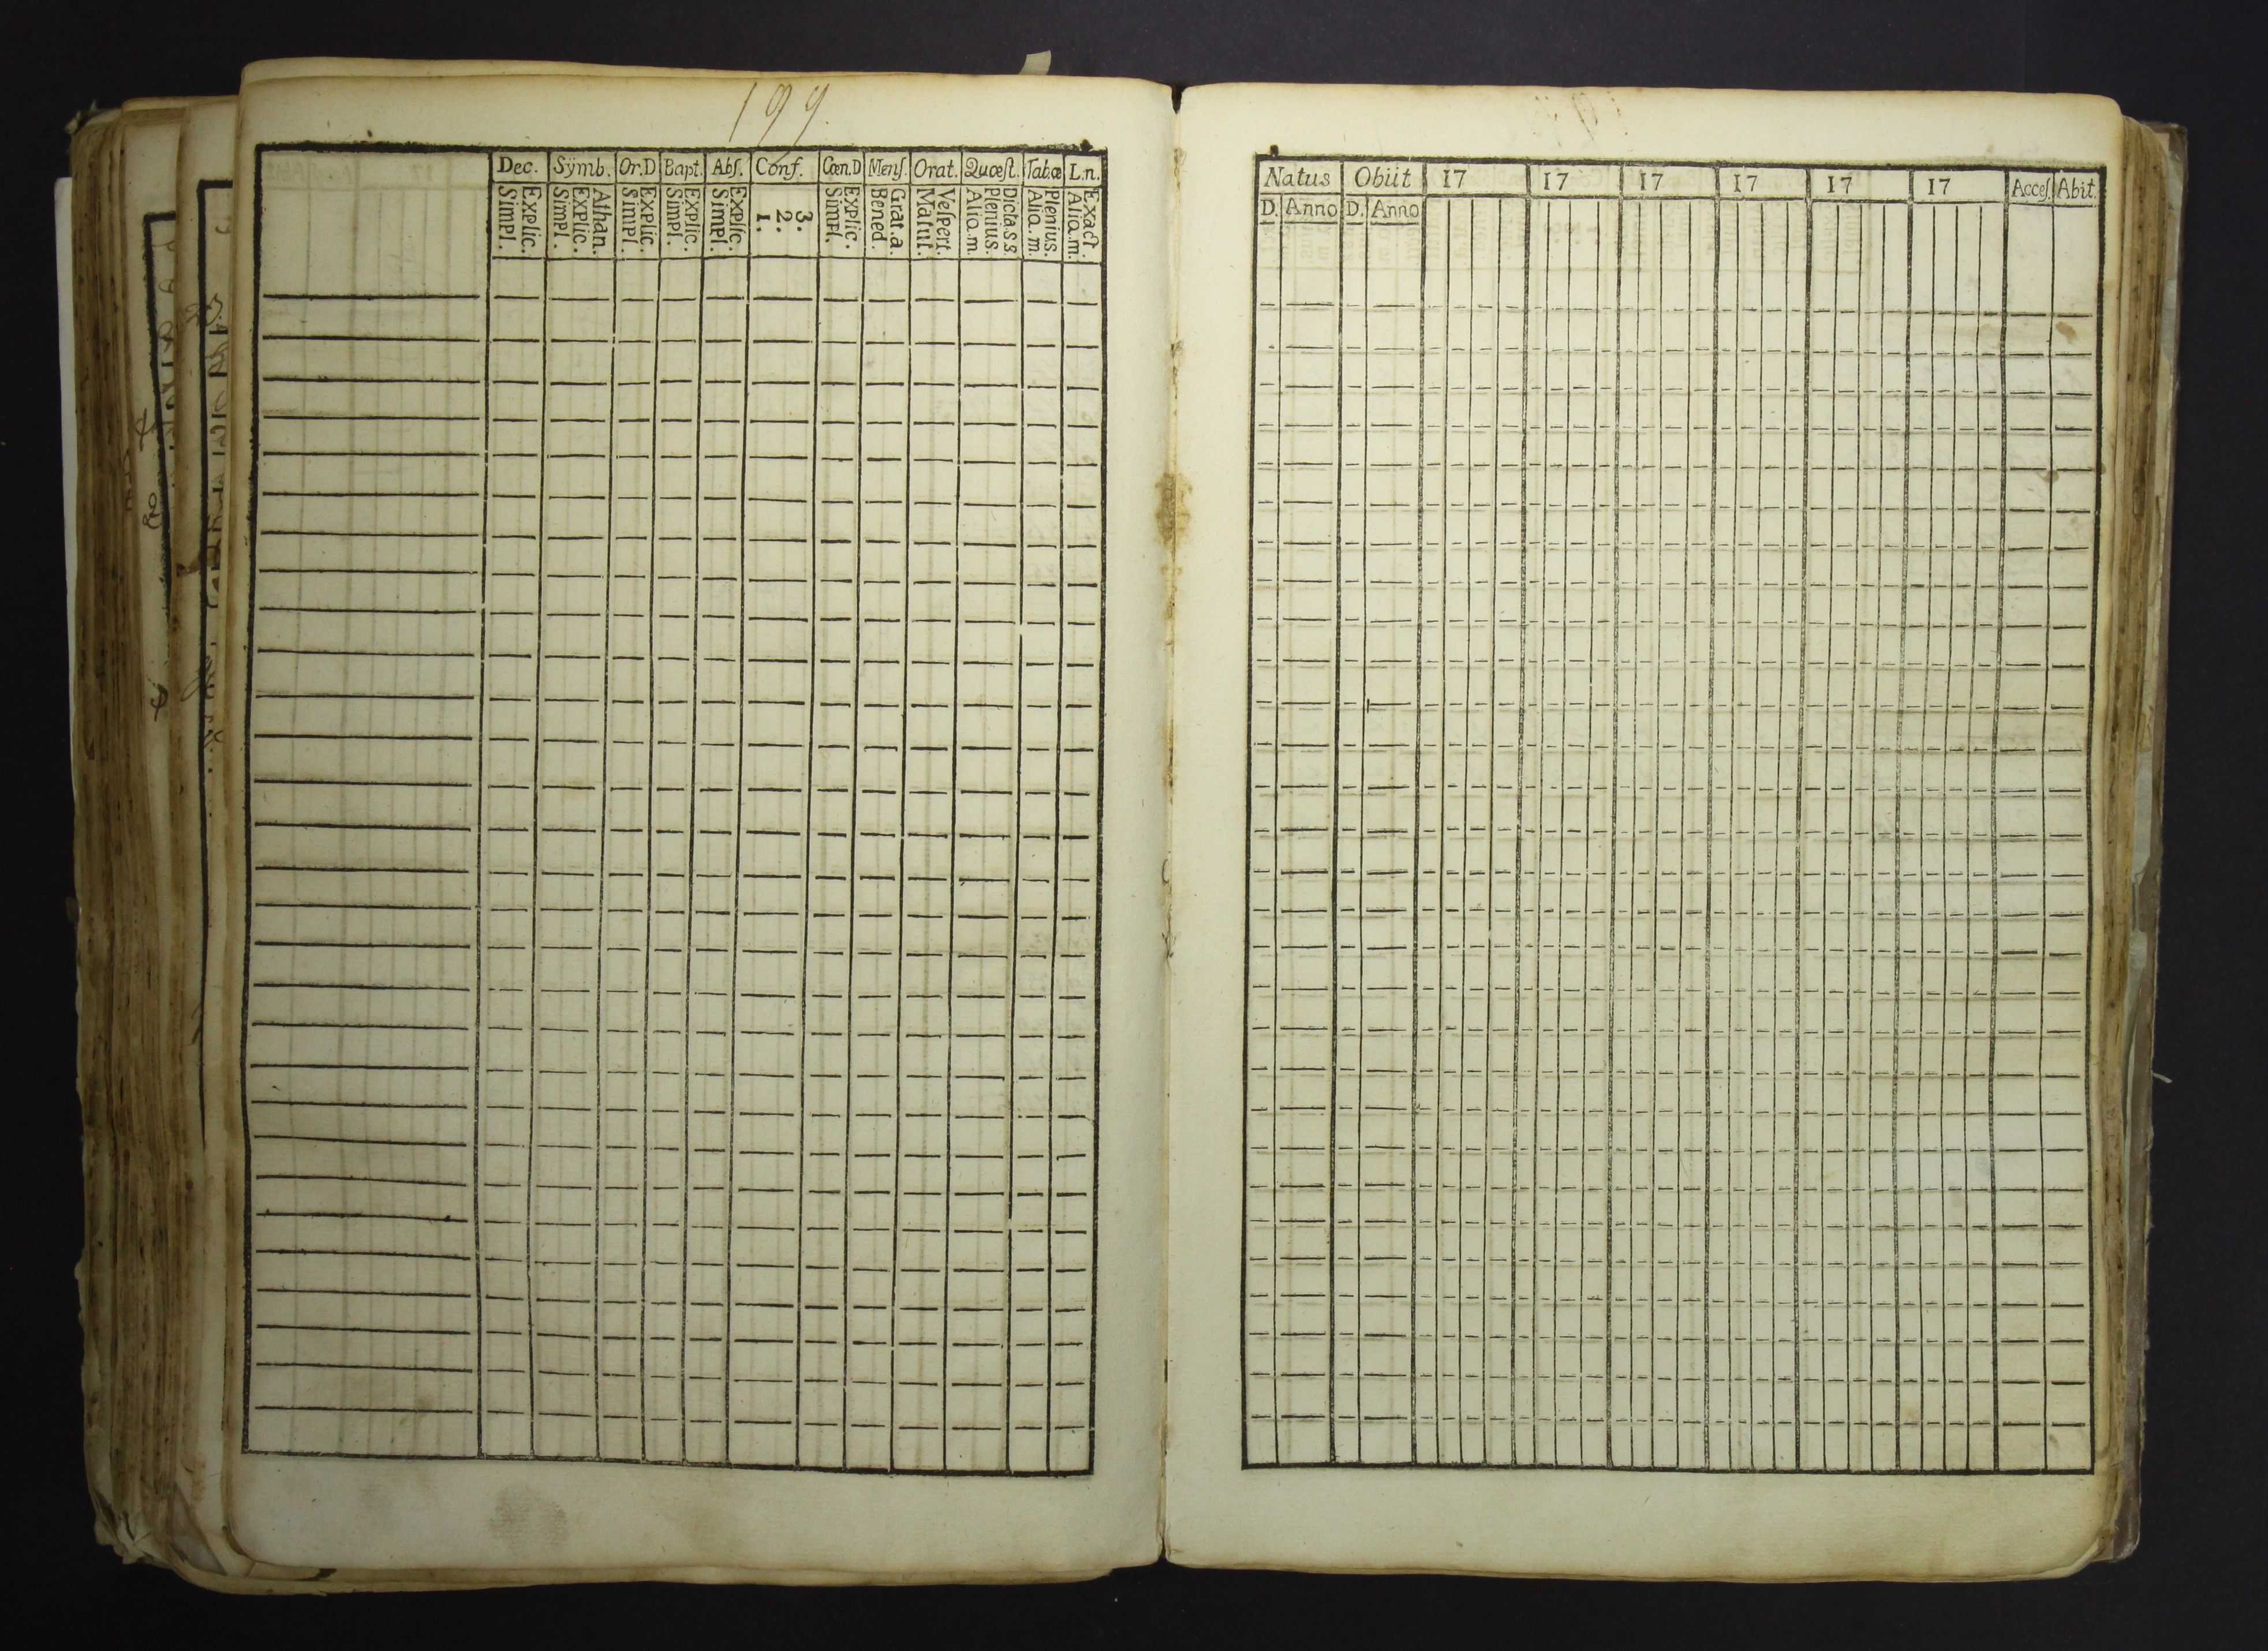 199.
Dec. Sÿmb. Or.D Bapt. Abſ. Conf. Cœn.D Menſ. Orat. Quæſt. Tab.œ L.n.
Explic. Simpl. Athan. Explic. Simpl. Explic. Simpl. Explic. Simpl. Explic. Simpl. 3. 2. 1. Explic. Simpl. Grat.a. Bened. Veſpert. Matut. Dicta.s.s. Plenius. Aliq.m. Plenius. Aliq.m. Exact. Aliq.m.
Natus Obiit 17 17 17 17 17 17 Acceſ. Abit.
D. Anno D. Anno